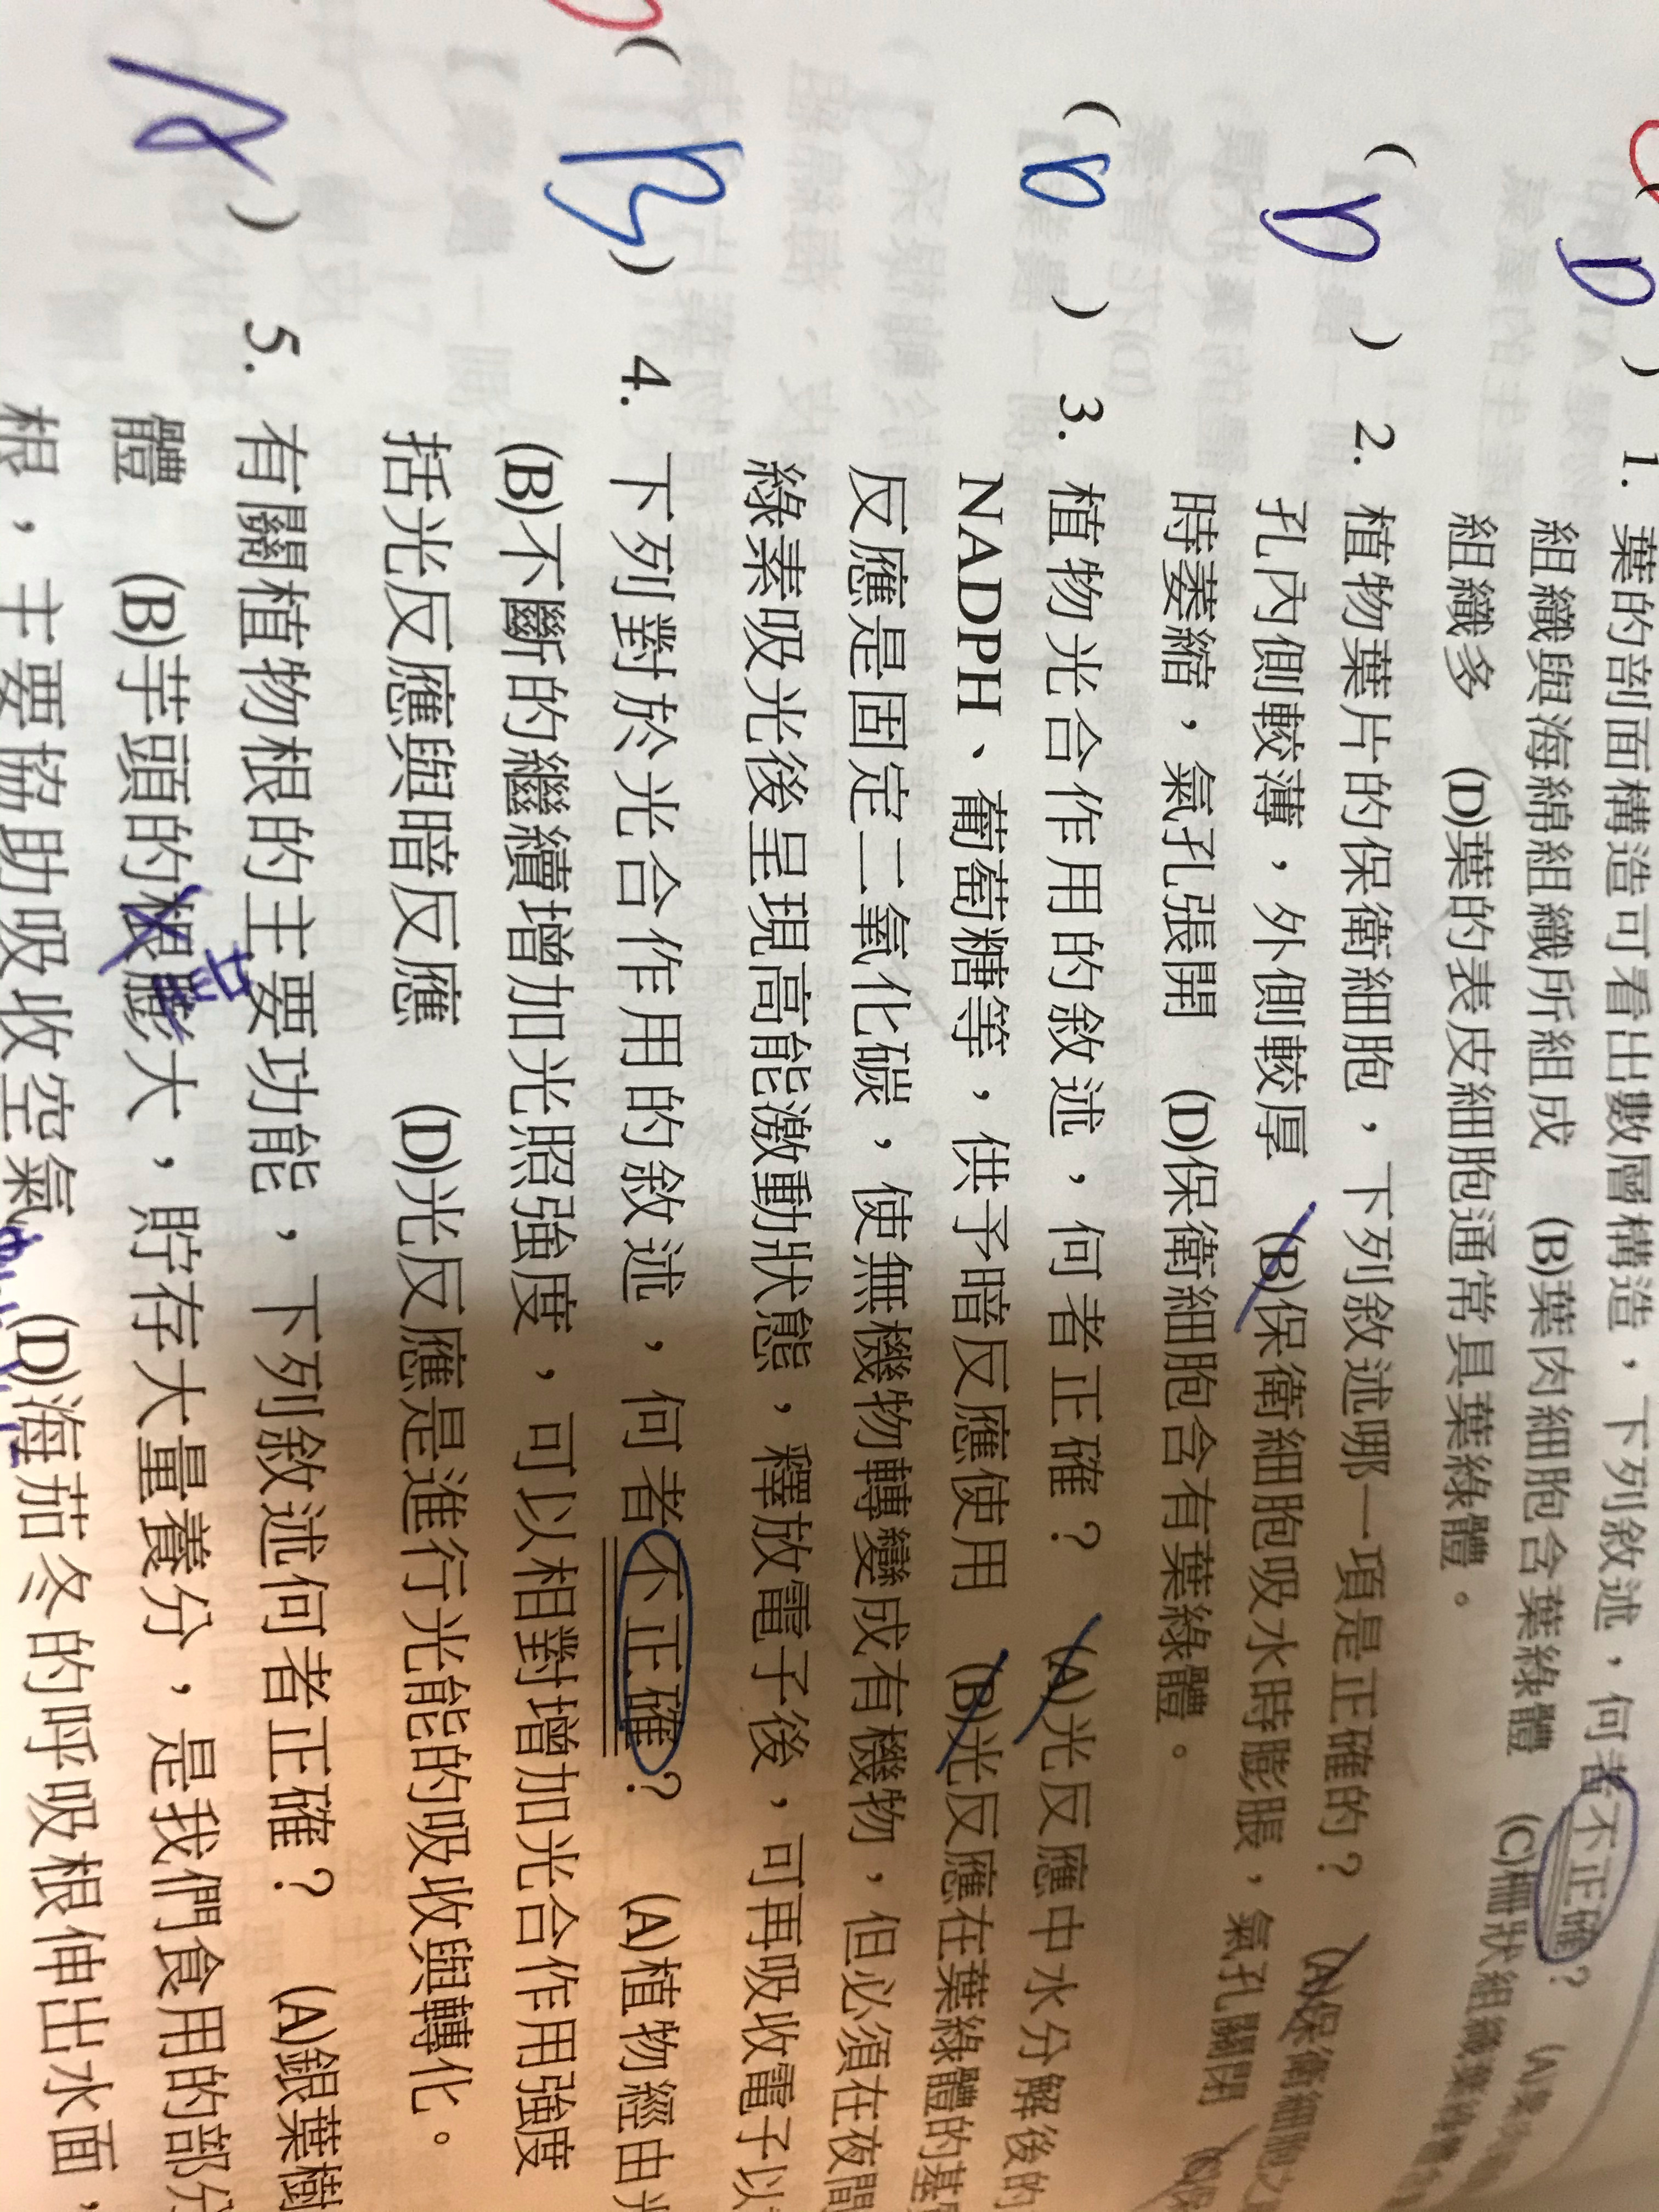 ( D ) 1. 葉的剖面構造可看出數層構造,下列敘述,何者不正確? (A)葉
組織與海綿組織所組成 (B)葉肉細胞含葉綠體 (C)柵狀組織葉綠體
組織多 (D)葉的表皮細胞通常具葉綠體。
( D ) 2. 植物葉片的保衛細胞,下列敘述哪一項是正確的? (A)保衛細胞之
孔內側較薄,外側較厚 (B)保衛細胞吸水時膨脹,氣孔關閉 (C)保
時萎縮,氣孔張開 (D)保衛細胞含有葉綠體。
( D ) 3. 植物光合作用的敘述,何者正確? (A)光反應中水分解後的
NADPH、葡萄糖等,供予暗反應使用 (B)光反應在葉綠體的基
反應是固定二氧化碳,使無機物轉變成有機物,但必須在夜間
綠素吸光後呈現高能激動狀態,釋放電子後,可再吸收電子以
( B ) 4. 下列對於光合作用的敘述,何者不正確? (A)植物經由光
(B)不斷的繼續增加光照強度,可以相對增加光合作用強度
括光反應與暗反應 (D)光反應是進行光能的吸收與轉化。
) 5. 有關植物根的主要功能,下列敘述何者正確? (A)銀葉樹
體 (B)芋頭的根膨大,貯存大量養分,是我們食用的部分
莖
根,主要協助吸收空氣 (D)海茄冬的呼吸根伸出水面,